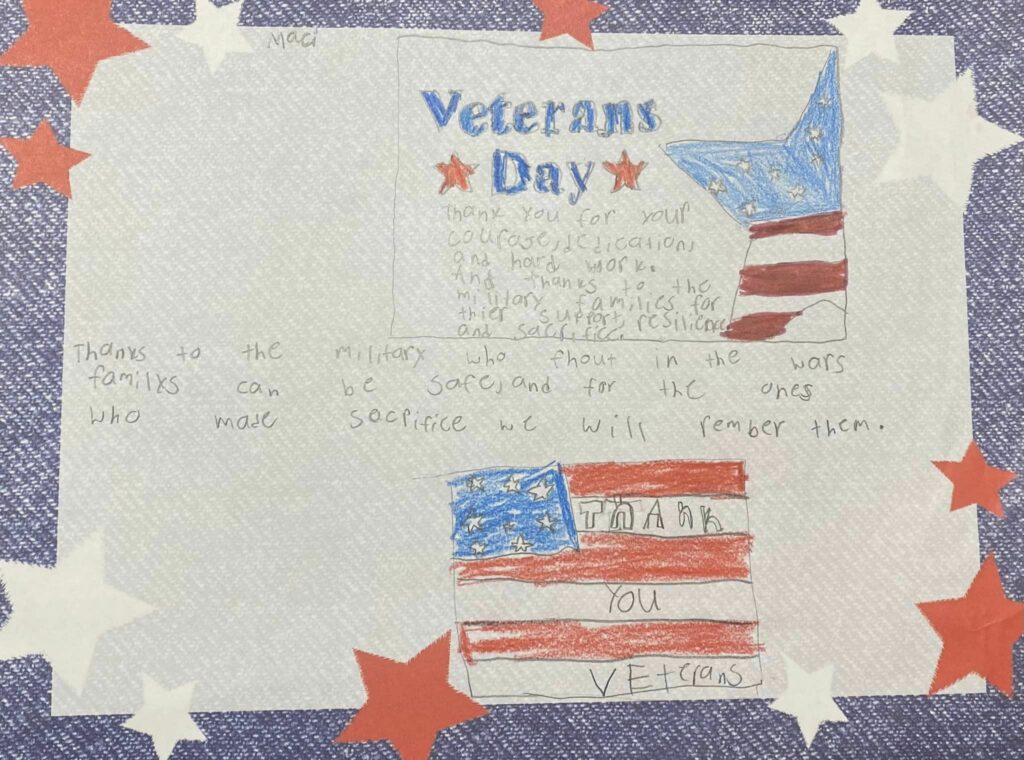 Maci
Veterans
Day
Thank you for your
courage, dedication,
and hard work.
And thanks to the
military families for
thier support, resilience
and sacrifice.
Thanks to the military who fhout in the wars
familys can be safe, and for the ones
who made sacrifice we will rember them.
THANK
YOU
VEterans